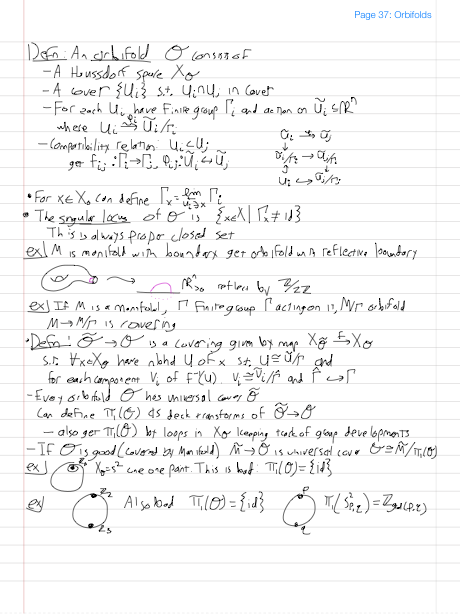 Page 37: Orbifolds
Defn: An orbifold O consists of
- A Haussdorf space X_O
- A cover {U_i} s.t. U_i∩U_j in cover
- For each U_i have finite group Γ_i and action on Ũ_i ⊆ R^n
where U_i ≅ Ũ_i/Γ_i
- Compatibility relation: U_i ⊂ U_j
get f_ij: Γ_i → Γ_j, φ_ij: Ũ_i ↪ Ũ_j
Ũ_i → Ũ_j
Ũ_i/Γ_i → Ũ_j/Γ_i
U_i ↪ Ũ_j/Γ_j
• For x∈X_O can define Γ_x = lim_{U_i∋x} Γ_i
• The singular locus of O is {x∈X | Γ_x ≠ id}
This is always propor closed set
ex) M is manifold with boundary get orbifold with reflective boundary
R^n_{≥0} reflect by Z/2Z
ex) If M is a manifold, Γ finite group Γ acting on it, M/Γ orbifold
M → M/Γ is covering
• Defn: Õ → O is a covering given by map X_Õ →^f X_O
s.t. ∀x∈X_O have nbhd U of x s.t. U ≅ Ũ/Γ and
for each component V_i of f^{-1}(U). V_i ≅ Ũ_i/Γ and Γ ↪ Γ
- Every orbifold O hes universal cover Õ
Can define π_1(O) as deck transforms of Õ → O
- also get π_1(O) by loops in X_O keeping track of group developments
- If O is good (covered by manifold) M̃ → O is universal cover O ≅ M̃/π_1(O)
ex) X_O = S^2 cone one point. This is bad: π_1(O) = {id}
ex) Z_2 Z_3 Also bad π_1(O) = {id} p q π_1(S^2_{p,q}) = Z_{gcd(p,q)}